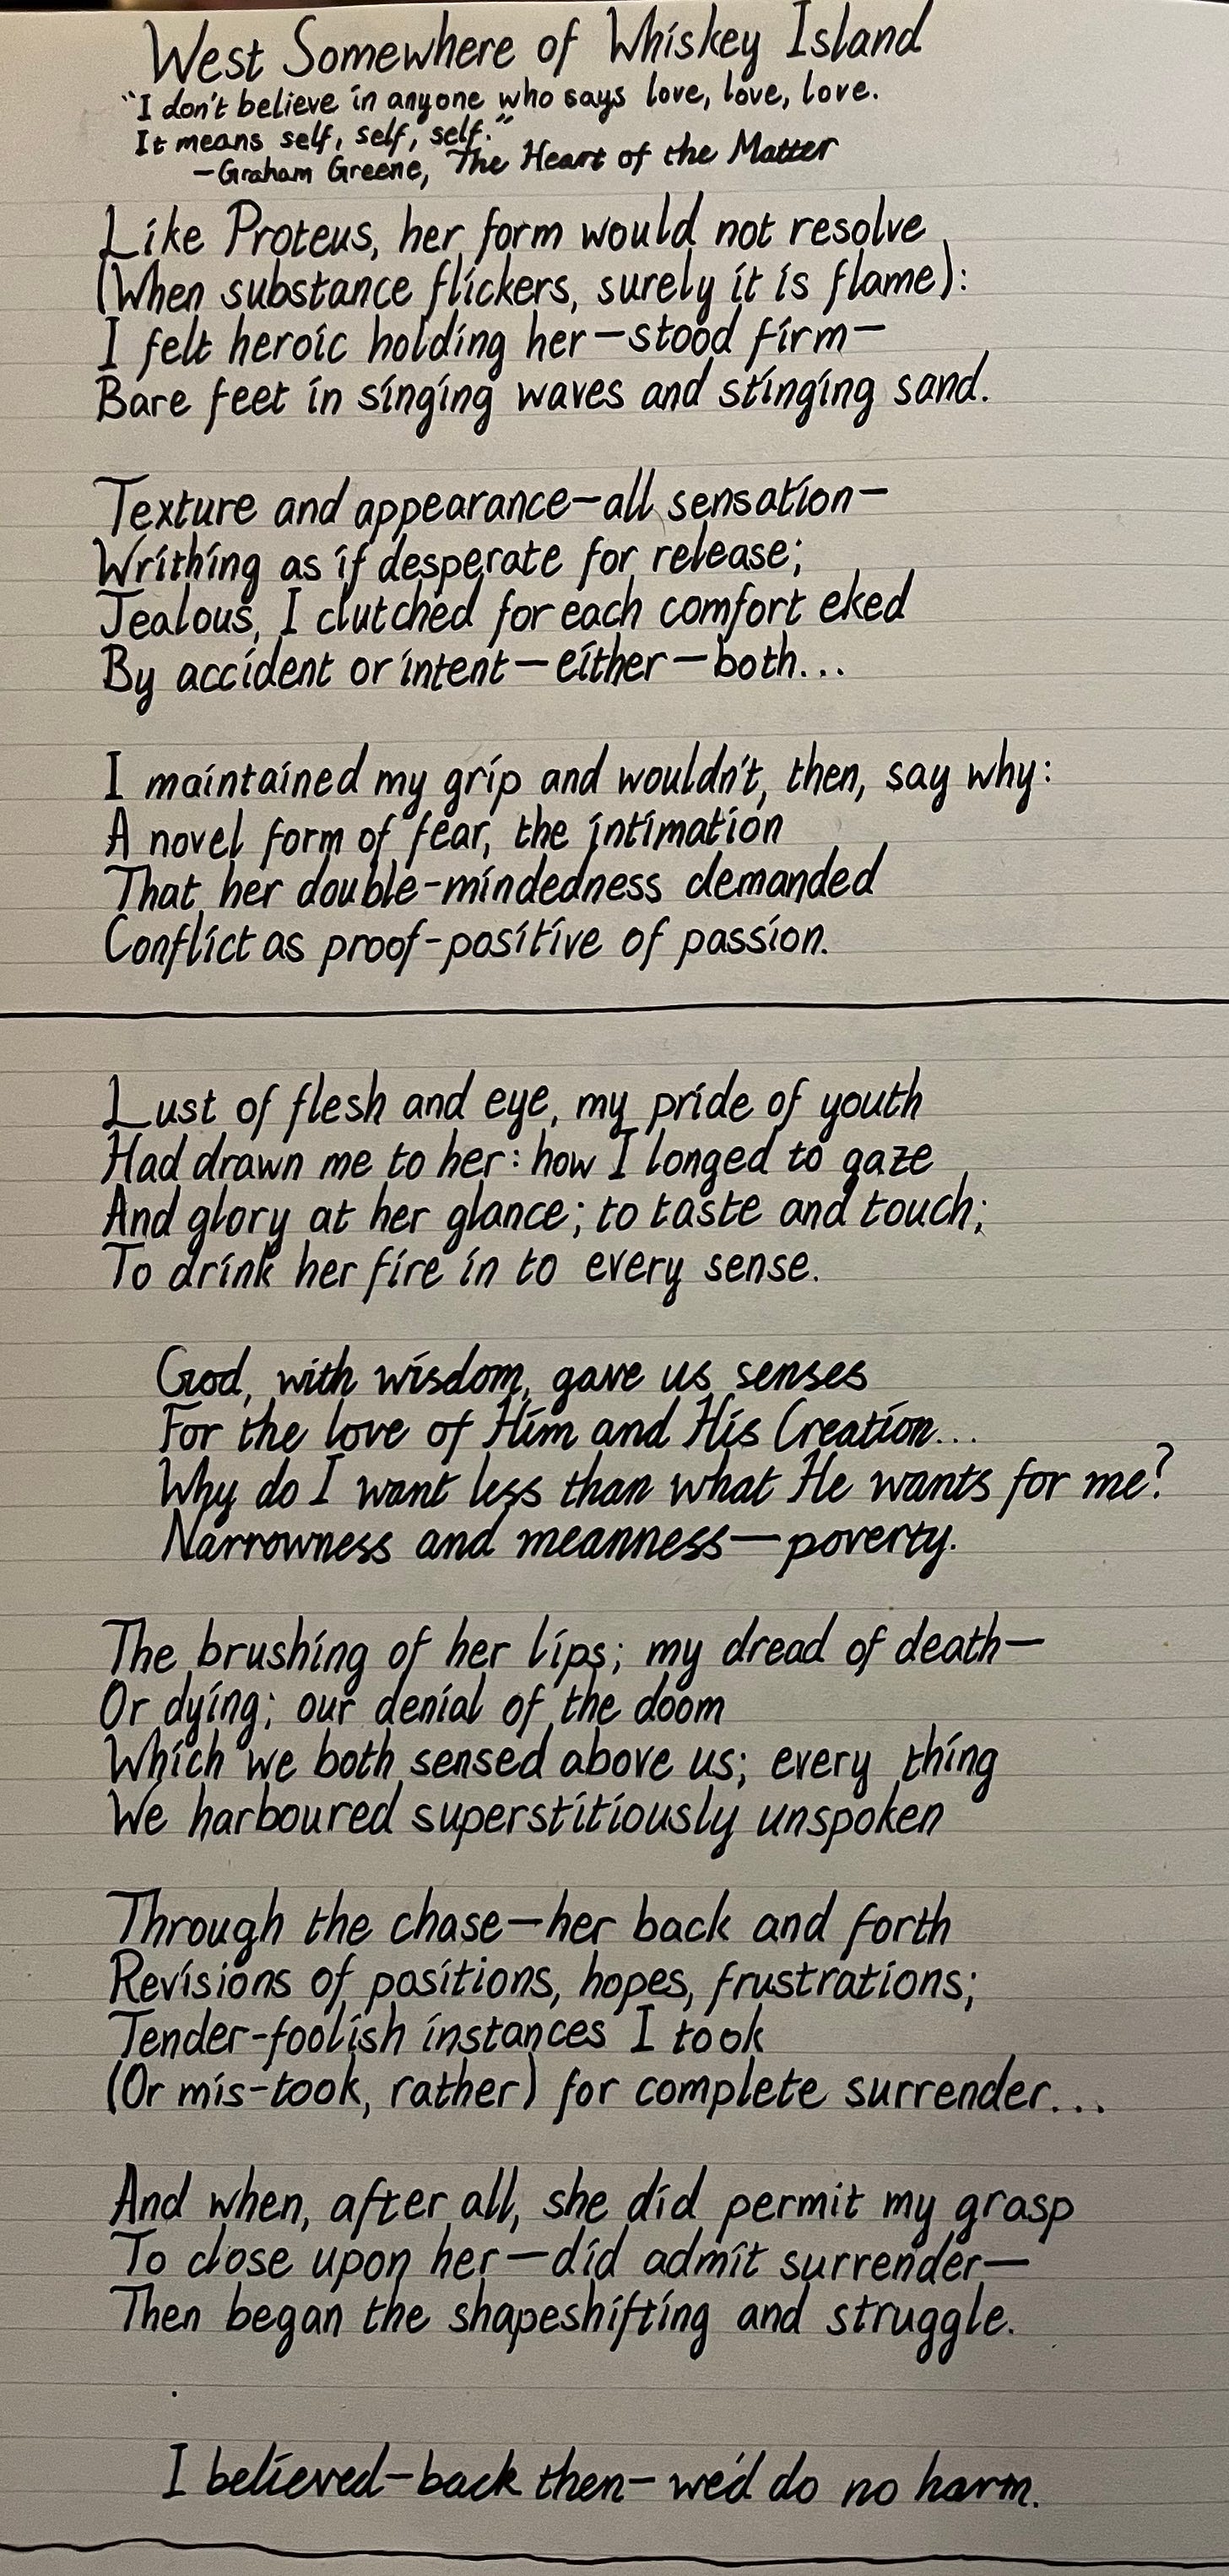 West Somewhere of Whiskey Island
"I don't believe in anyone who says love, love, love.
It means self, self, self."
—Graham Greene, The Heart of the Matter
Like Proteus, her form would not resolve
(When substance flickers, surely it is flame):
I felt heroic holding her—stood firm—
Bare feet in singing waves and stinging sand.
Texture and appearance—all sensation—
Writhing as if desperate for release;
Jealous, I clutched for each comfort eked
By accident or intent—either—both...
I maintained my grip and wouldn't, then, say why:
A novel form of fear, the intimation
That her double-mindedness demanded
Conflict as proof-positive of passion.
Lust of flesh and eye, my pride of youth
Had drawn me to her: how I longed to gaze
And glory at her glance; to taste and touch;
To drink her fire in to every sense.
God, with wisdom, gave us senses
For the love of Him and His Creation...
Why do I want less than what He wants for me?
Narrowness and meanness—poverty.
The brushing of her lips; my dread of death—
Or dying; our denial of the doom
Which we both sensed above us; every thing
We harboured superstitiously unspoken
Through the chase—her back and forth
Revisions of positions, hopes, frustrations;
Tender-foolish instances I took
(Or mis-took, rather) for complete surrender...
And when, after all, she did permit my grasp
To close upon her—did admit surrender—
Then began the shapeshifting and struggle.
I believed—back then—we'd do no harm.